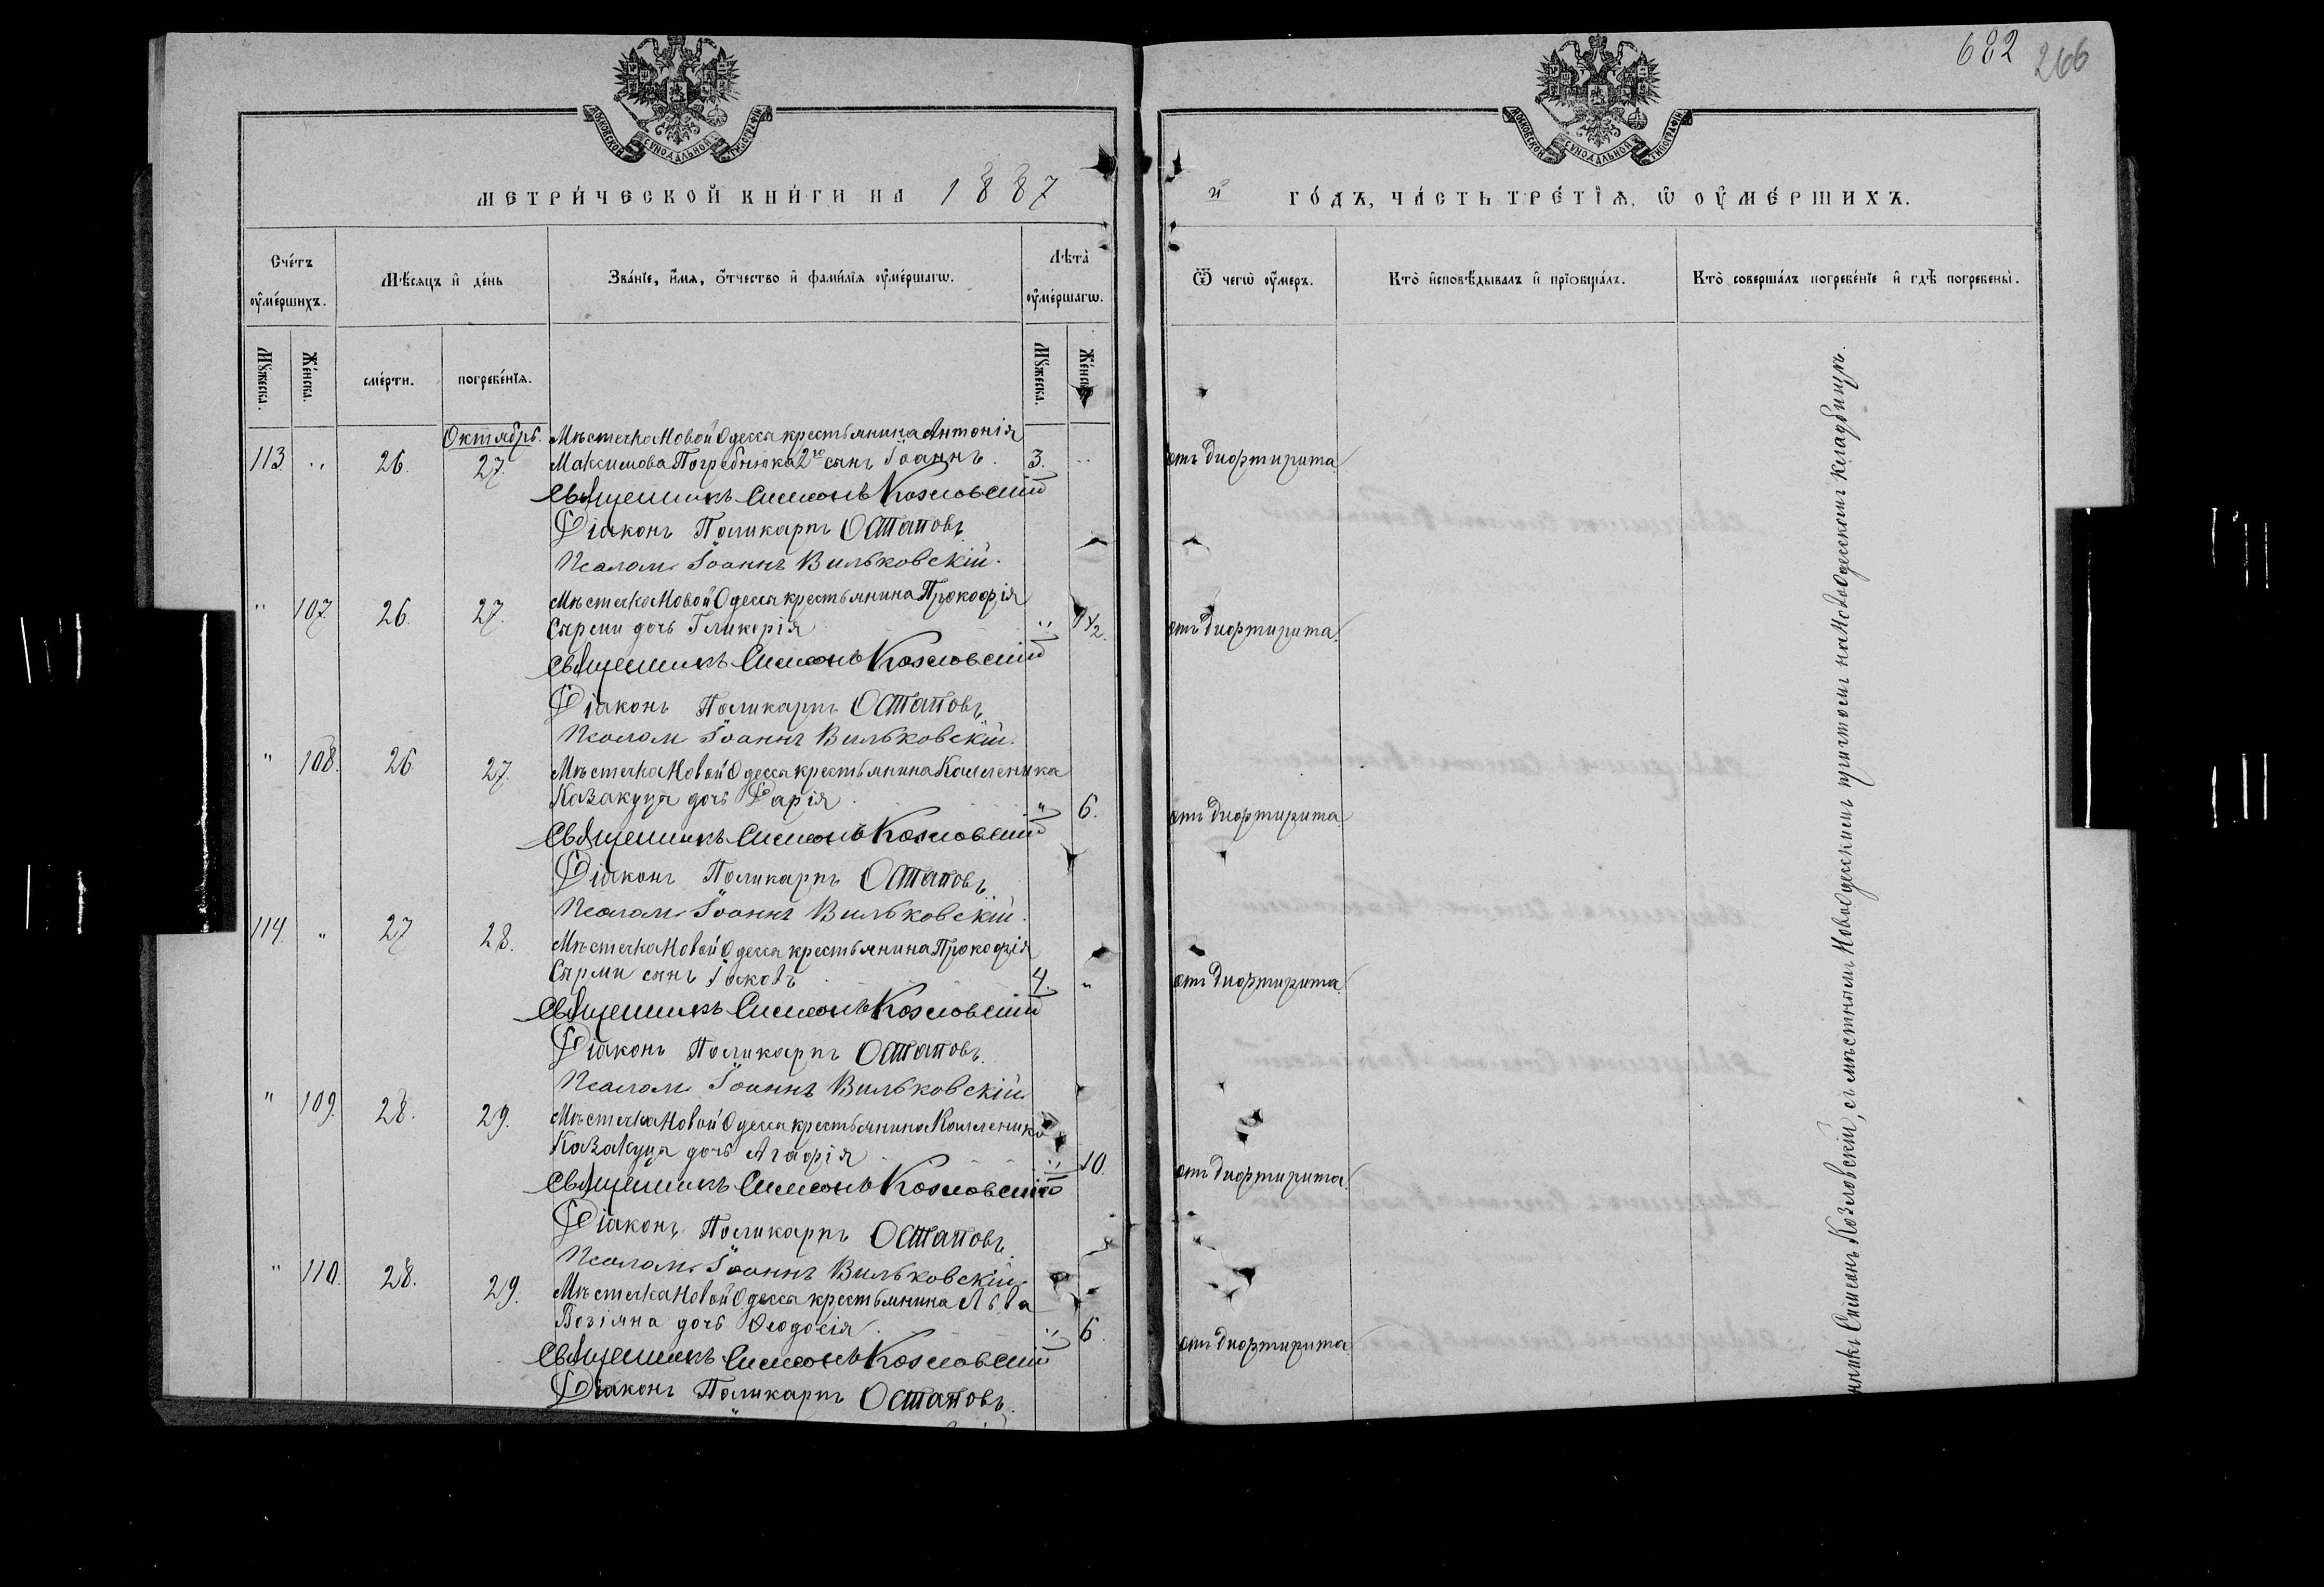 682 266
МОСКОВСКОЙ СѴНОДАЛЬНОЙ ТИПОГРАФІИ
МОСКОВСКОЙ СѴНОДАЛЬНОЙ ТИПОГРАФІИ
МЕТРИ́ЧЕСКОЙ КНИ́ГИ НА 1887
й ГО́ДЪ, ЧА́СТЬ ТРЕ́ТІѦ, Ѡ ОУ҆МЕ́РШИХЪ.
Сче́тъ оу҆ме́ршихъ.
Мѣ́сяцъ и҆ де́нь
Зва́нїе, и҆́мя, ѻ҆́тчество и҆ фами́лїя оу҆ме́ршагѡ.
Лѣта̀ оу҆ме́ршагѡ.
Ѿ чегѡ̀ оу҆́меръ.
Кто̀ и҆сповѣ́дывалъ и҆ прїѡбща́лъ.
Кто̀ соверша́лъ погребе́нїе и҆ гдѣ̀ погребены̀.
Мꙋ́жеска.
Же́нска.
сме́рти.
погребе́нїя.
Мꙋ́жеска.
Же́нска.
Октябрь. Мѣстечка Новой Одессы крестьянина Антонія
113. „ 26. 27. Максимова Погребнюка 2го сынъ Іоаннъ. 3. „ отъ дифтирита.
Священникъ Симеонъ Козловскій
Діаконъ Поликарпъ Остаповъ
Псалом. Іоаннъ Вильковскій.
„ 107. 26. 27. Мѣстечка Новой Одессы крестьянина Прокофія
Сырми дочь Гликерія „ 1½. отъ дифтирита.
Священникъ Симеонъ Козловскій
Діаконъ Поликарпъ Остаповъ
Псалом. Іоаннъ Вильковскій.
„ 108. 26. 27. Мѣстечка Новой Одессы крестьянина Каллиника
Казакуца дочь Дарія. „ 6. отъ дифтирита.
Священникъ Симеонъ Козловскій
Діаконъ Поликарпъ Остаповъ
Псалом. Іоаннъ Вильковскій.
114. „ 27 28. Мѣстечка Новой Одессы крестьянина Прокофія
Сырми сынъ Іаковъ 4. „ отъ дифтирита.
Священникъ Симеонъ Козловскій
Діаконъ Поликарпъ Остаповъ.
Псалом. Іоаннъ Вильковскій
„ 109. 28. 29. Мѣстечка Новой Одессы крестьянина Каллиника
Казакуца дочь Агафія „ 10. отъ дифтирита.
Священникъ Симеонъ Козловскій
Діаконъ Поликарпъ Остаповъ.
Псалом. Іоаннъ Вильковскій.
„ 110. 28. 29. Мѣстечка Новой Одессы крестьянина Льва
дочь Ѳеодосія. „ 6. отъ дифтирита
Священникъ Симеонъ Козловскій
Діаконъ Поликарпъ Остаповъ.
Симеонъ Козловскій, съ мѣстнымъ Новоодесскимъ причтомъ на Новоодесскомъ кладбищѣ.